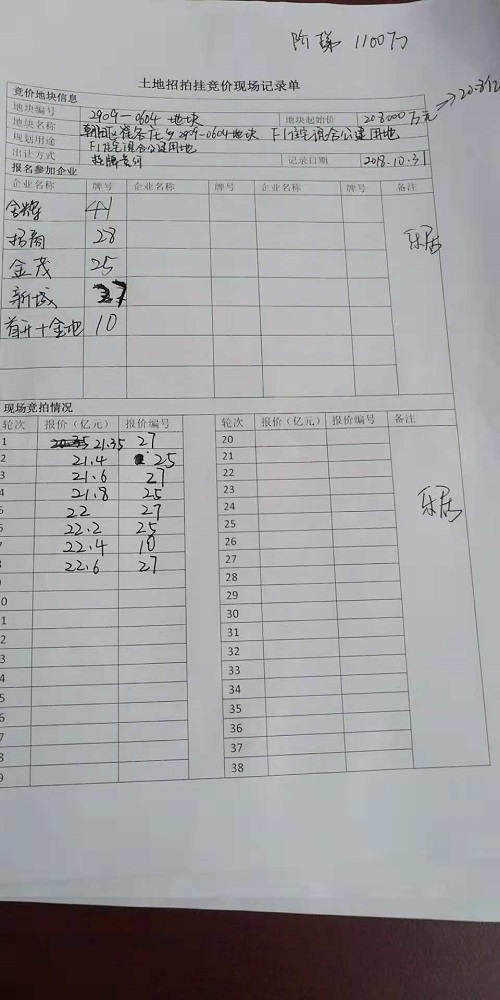 阶梯 1100万
土地招拍挂竞价现场记录单
竞价地块信息
地块编号 2909-0604 地块 地块起始价 203000 万元 → 20.3亿
地块名称 朝阳区崔各庄乡2909-0604地块 F1住宅混合公建用地
规划用途 F1住宅混合公建用地
出让方式 挂牌 记录日期 2018.10.31
报名参加企业
企业名称 牌号 企业名称 牌号 企业名称 牌号 备注
金辉 41
招商 28
金茂 25
新城 27
首开+金地 10
乐居
现场竞拍情况
轮次 报价（亿元） 报价编号 轮次 报价（亿元） 报价编号 备注
1 21.35 27 20
2 21.4 25 21
3 21.6 27 22
4 21.8 25 23
22 27 24
22.2 25 25
22.4 10 26
22.6 27 27
28
0 29
1 30
2 31
3 32
4 33
5 34
6 35
7 36
8 37
9 38
乐居